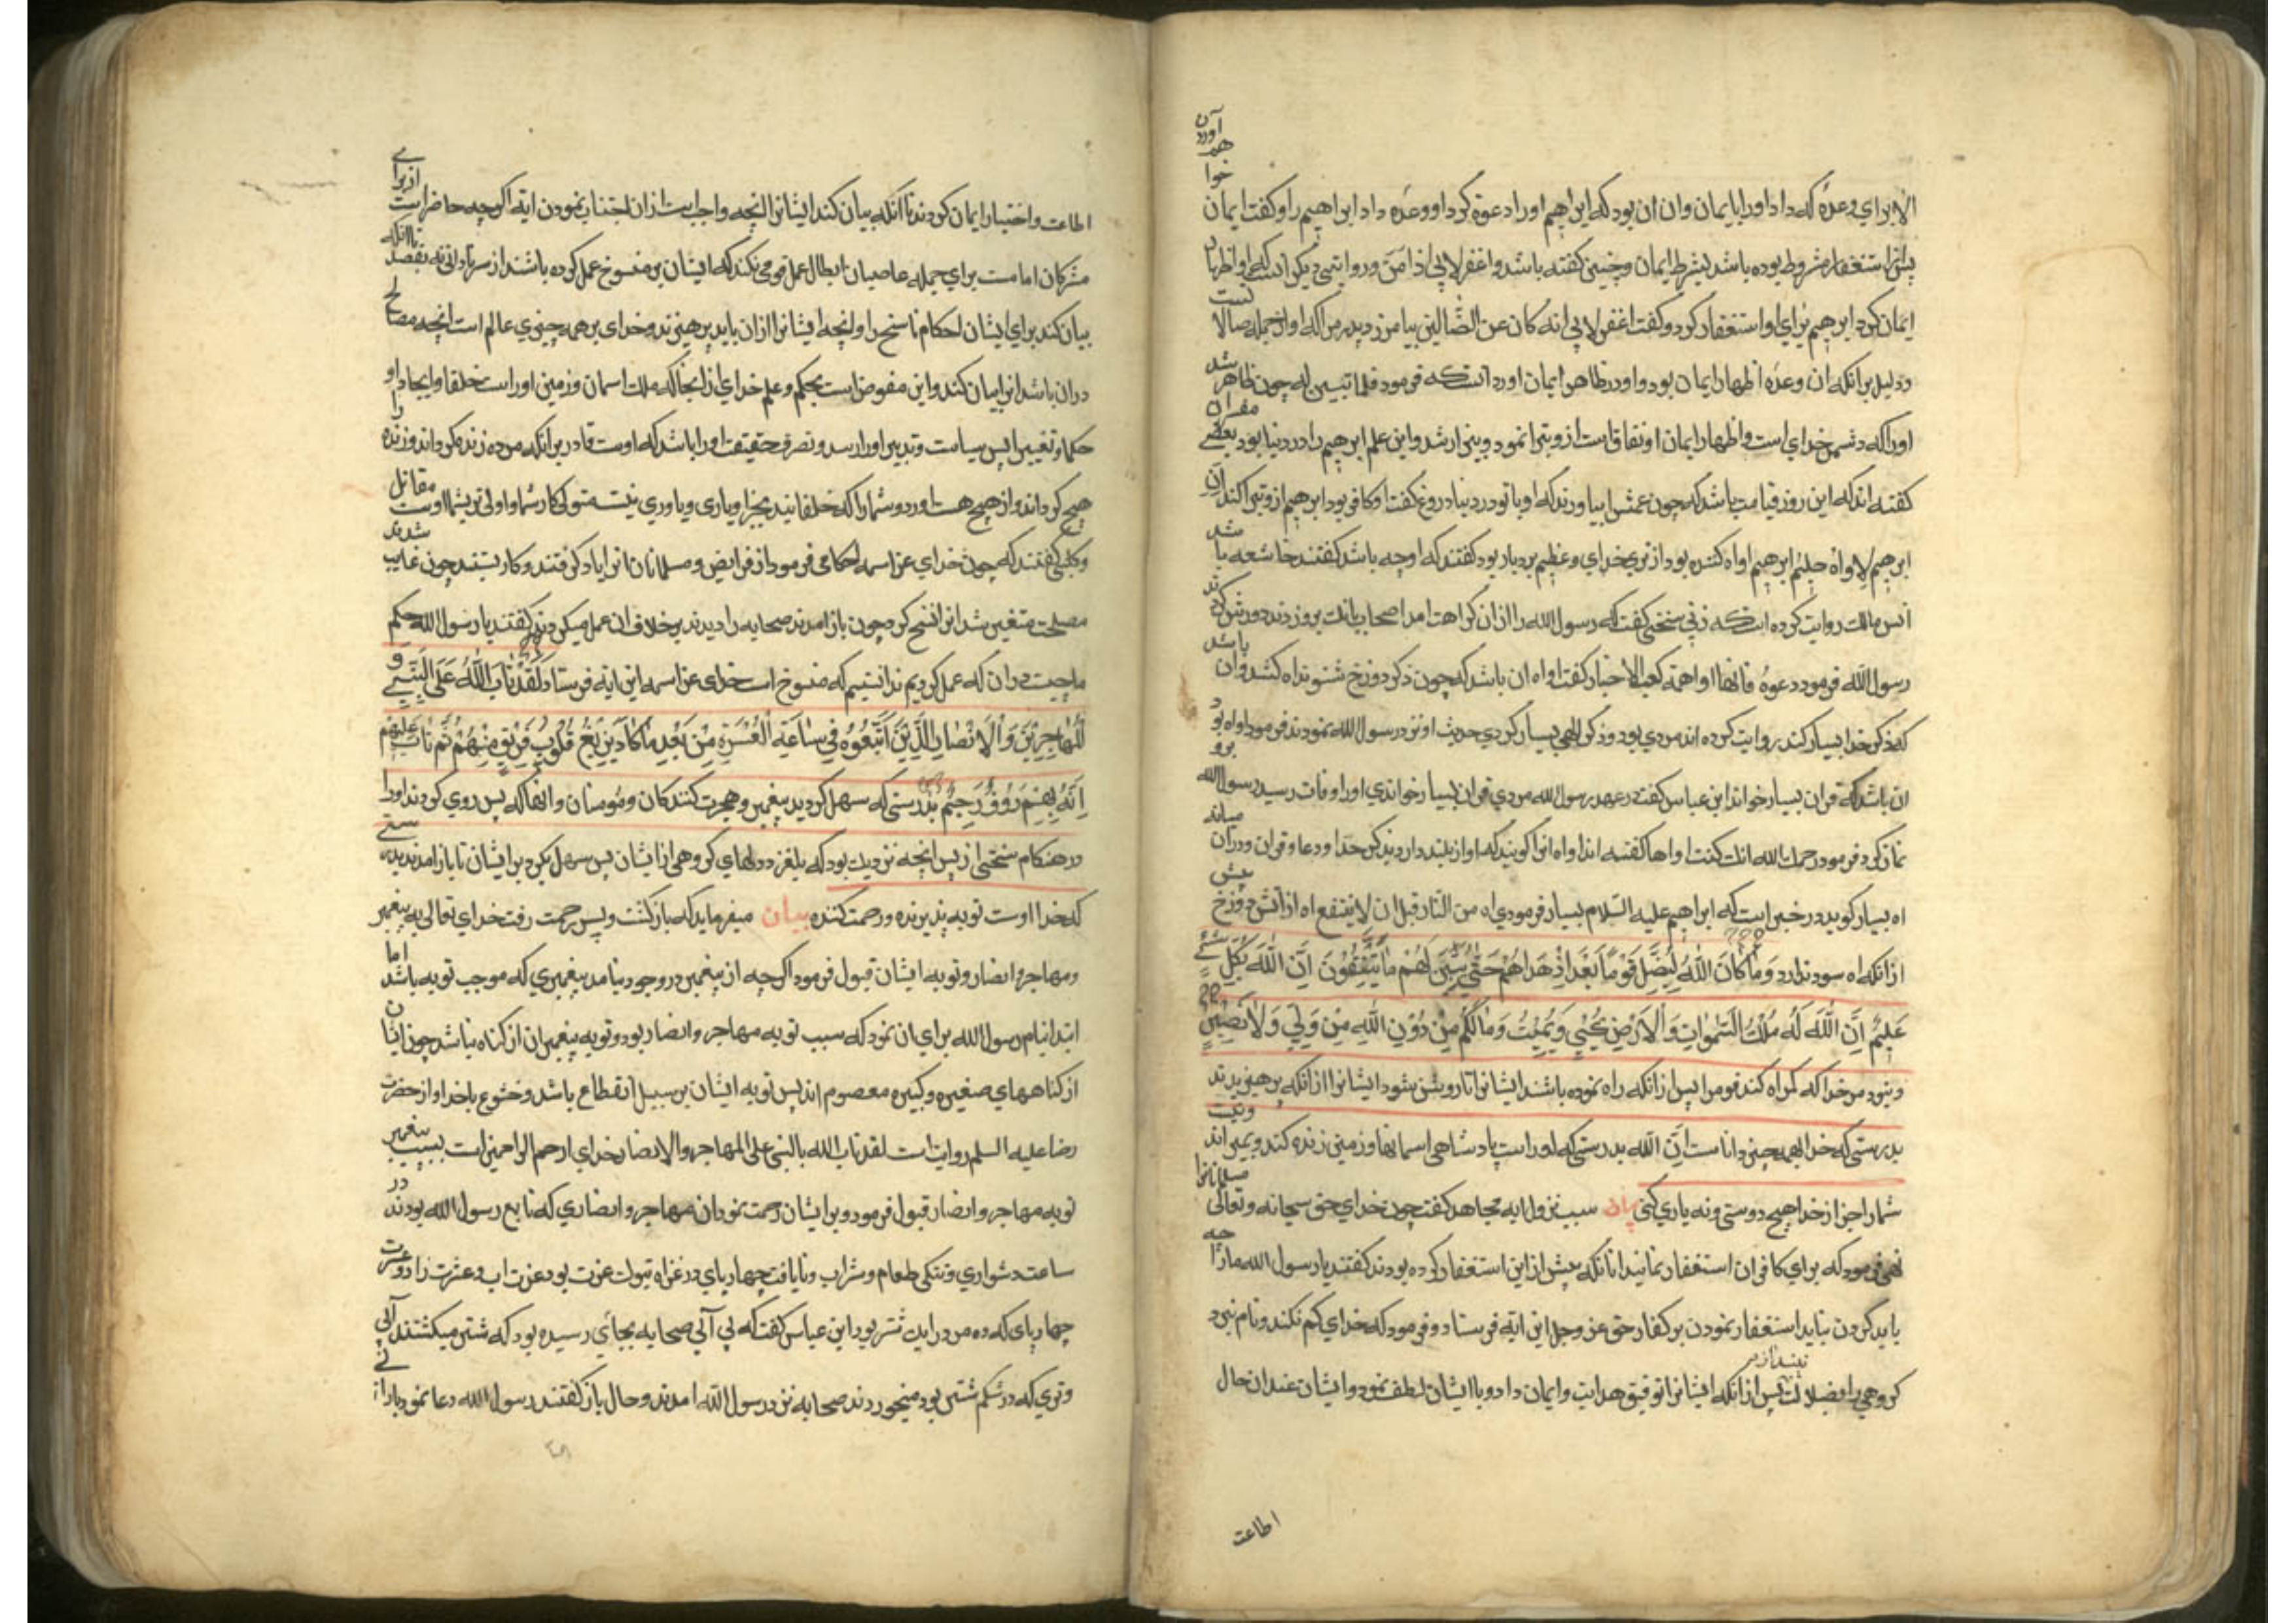 الا برای وعدهٔ که داد اورا بایمان وان ان بود که ابراهیم اورا دعوة کرد او وعده داد ابراهیم را و کفت ایمان خواهم آوردن
پس استغفار مشروط بوده باشد بشرط ایمان و چنین کفته باشد واغفر لابی اذا امن و روایتی دیکر انست که او اظهار
ایمان کرد ابرهیم برای او استغفار کرد و کفت اغفر لابی انه کان من الضّالین بیامرز پدر مرا که او از جمله ضالا نست
و دلیل برانکه ان وعده اظهار ایمان بود و او در ظاهر ایمان اورد انست که فرمود فلما تبین له چون ظاهر شد
اورا که دشمن خدای است و اظهار ایمان او نفاق است ازو تبرا نمود و بیزار شد و این علم ابرهیم را در دنیا بود بعضی مفسران
کفته اند که این روز قیامت باشد که چون عمش را بیاورند که او با تو در دنیا دروغ کفت او کافر بود ابرهیم ازو تبرا کند انّ
ابرهیم لاواه حلیم ابرهیم اواه کننده بود از ترس خدای و عظیم بردبار بود کفتند که اوجه باشد کفتند خاشعه با شد
انس مالک روایت کرده است که زنی سخنی کفت که رسول الله را ازان کراهت امد اصحاب بانک برو زدند دورش کردند
رسول الله فرمود دعوه فانها اواهة کعب الاحبار کفت اواه ان باشد که چون ذکر دوزخ شنود اه کند و ان باشد
که ذکر خدا بسیار کند روایت کرده اند مردی بود و ذکر الهی بسیار کردی حدیث او نزد رسول الله نمودند فرمود اواه بود
ان باشد که قران بسیار خواند ابن عباس کفت در عهد رسول الله مردی قران بسیار خواندی اورا وفات رسید رسول الله برو
نماز کرد فرمود رحمک الله انک کنت اواها کفته اند اواه انرا کویند که اواز بلند دارد بذکر خدا و دعا و قران و دران میانه
اه بسیار کوید در خبر است که ابراهیم علیه السّلام بسیار فرمودی اه من النّار قبل ان لا ینتفع اه از اتش دوزخ پیش
ازانکه اه سود ندارد وَمَا كَانَ اللَّهُ لِيُضِلَّ قَوْمًا بَعْدَ إِذْ هَدَاهُمْ حَتَّى يُبَيِّنَ لَهُمْ مَا يَتَّقُونَ إِنَّ اللَّهَ بِكُلِّ شَيْءٍ
عَلِيمٌ إِنَّ اللَّهَ لَهُ مُلْكُ السَّمَوَاتِ وَالْأَرْضِ يُحْيِي وَيُمِيتُ وَمَا لَكُمْ مِنْ دُونِ اللَّهِ مِنْ وَلِيٍّ وَلَا نَصِيرٍ
و نبود مر خدا که کمراه کند قومرا پس ازانکه راه نموده باشد ایشانرا تا روشن شود ایشانرا ازانکه پرهیزیدند
بدرستی که خدا بهمه چیز داناست اِنّ الله بدرستی که اوراست پادشاهی اسمانها و زمین زنده کند و بمیراند و نیست
شمارا جز از خدا هیچ دوستی و نه یاری کنی بیان سبب نزول ایه مجاهد کفت چون خدای حق سبحانه وتعالی مسلمانانرا
نهی فرمود که برای کافران استغفار نمانید انانکه پیش ازاین استغفار کرده بودند کفتند یا رسول الله مارا چه
باید کردن نباید استغفار نمودن بر کفار حق عز وجل این ایه فرستاد و فرمود که خدای کم نکند و نام نبرد
کروهی را بضلالت پس ازانکه ایشانرا توفیق هدایت و ایمان داد و با ایشان لطف نمود و ایشان عند ان حال
اطاعت
اطاعت و اختیار ایمان کردند تا انکه بیان کند ایشانرا انچه واجب است ازان اجتناب نمودن ایه اکرچه حاضر است از برای
مشرکان اما مت برای جمله عاصیان ابطال عمل قومی نکند که ایشان بر منسوخ عمل کرده باشند از سر نادانی نه بقصد تا انکه
بیان کند برای ایشان احکام ناسخ را و انچه ایشانرا ازان باید پرهیزند و خدای بر همه چیزی عالم است انچه مصالح
دران باشد انرا بیان کند و این مفوض است بحکم و علم خدای ازانجا که ملک اسمان و زمین اوراست خلقا و ایجادا و
حکما و تغییرا پس سیاست و تدبیر اورا رسد و تصرف حقیقت اورا باشد که اوست قادر برانکه مرده زنده کرداند و زنده را
هیچ کرداند و از هیچ هست اورد و شمارا که خلقانید بجز او یاری و یاوری نیست متولی کار شما و اولی تر بشما اوست مقاتل
و کلبی کفتند که چون خدای عز اسمه احکامی فرمود از فرایض و مسلمانان انرا یاد کرفتند و کار بستند چون غایب شدند
مصلحت متغیر شد انرا نسخ کرد چون باز امدند صحابه را دیدند برخلاف ان عمل میکردند کفتند یا رسول الله حکم
ما چیست دران که عمل کردیم ندانستیم که منسوخ است خدای عز اسمه این ایه فرستاد لَقَدْ تَابَ اللَّهُ عَلَى النَّبِيِّ وَ
الْمُهَاجِرِينَ وَالْأَنْصَارِ الَّذِينَ اتَّبَعُوهُ فِي سَاعَةِ الْعُسْرَةِ مِنْ بَعْدِ مَا كَادَ يَزِيغُ قُلُوبُ فَرِيقٍ مِنْهُمْ ثُمَّ تَابَ عَلَيْهِمْ
إِنَّهُ بِهِمْ رَءُوفٌ رَحِيمٌ بدرستی که سهل کردید پیغمبر و هجرت کنندکان و مومنان و انها که پس روی کردند اورا
در هنکام سختی از پس انچه نزدیک بود که بلغزد دلهای کروهی از ایشان پس سهل بکرد بر ایشان تا باز امدند بدرستی
که خدا اوست توبه پذیرنده و رحمت کننده بیان میفرماید که باز کشت و پس رحمت رفت خدای تعالی به پیغمبر
و مهاجر و انصار و توبه ایشان قبول فرمود اکرچه از پیغمبر در وجود نیامد پیغمبری که موجب توبه باشد اما
ابتدا بنام رسول الله برای ان نمود که سبب توبه مهاجر و انصار بود و توبه پیغمبران از کناه نباشد چون ایشان
از کناههای صغیره و کبیره معصوم اند پس توبه ایشان بر سبیل انقطاع باشد و خشوع با خدا و از حضرت
رضا علیه السلم روایت است لقد تاب الله بالنبی علی المهاجر والانصار خدای ارحم الراحمین است بسبب پیغمبر
توبه مهاجر و انصار قبول فرمود و بر ایشان رحمت نمود ان مهاجر و انصاری که تابع رسول الله بودند در
ساعت دشواری و تنکی طعام و شراب و نایافت چهارپای در غزاه تبوک عزت بود عزت اب و عزت زاد و عزت
چهارپای که ده مرد را یک شتر بود ابن عباس کفت که بی آبی صحابه بجائی رسیده بود که شتر میکشتند آبی
و تری که در شکم شتر بود میخوردند صحابه نزد رسول الله امدند و حال باز کفتند رسول الله دعا نمود بارانی